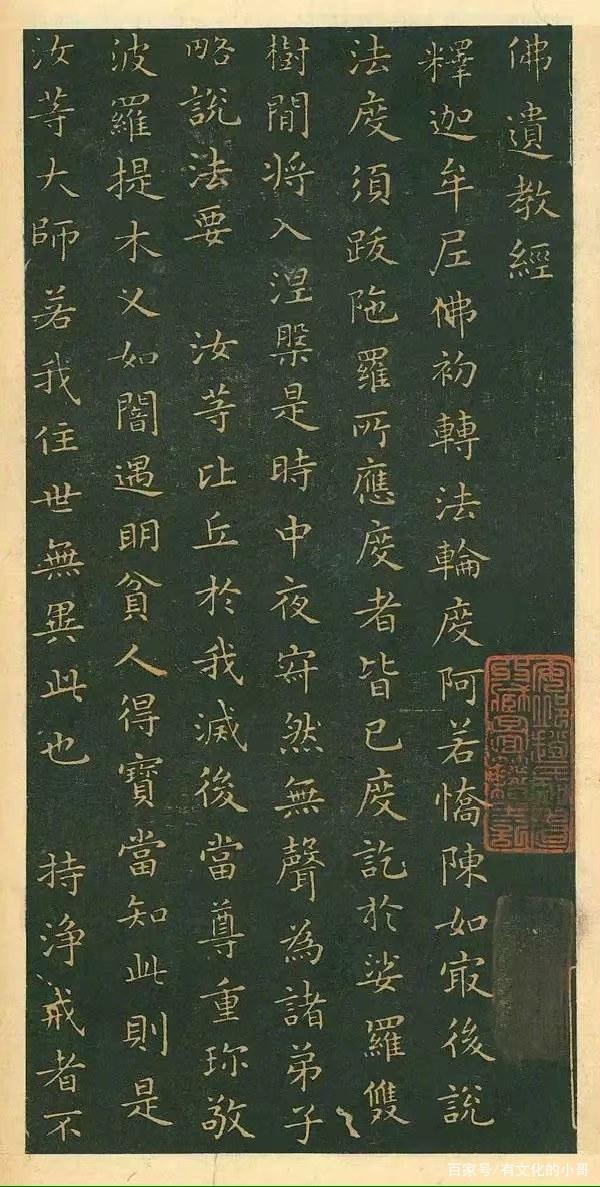 佛遺教經
釋迦牟尼佛初轉法輪度阿若憍陳如冣後說
法度須跋陁羅所應度者皆已度訖於娑羅雙
樹間將入涅槃是時中夜寂然無聲為諸弟子
略說法要 汝等比丘於我滅後當尊重珎敬
波羅提木叉如闇遇明貧人得寶當知此則是
汝等大師若我住世無異此也 持淨戒者不
百家号/有文化的小哥